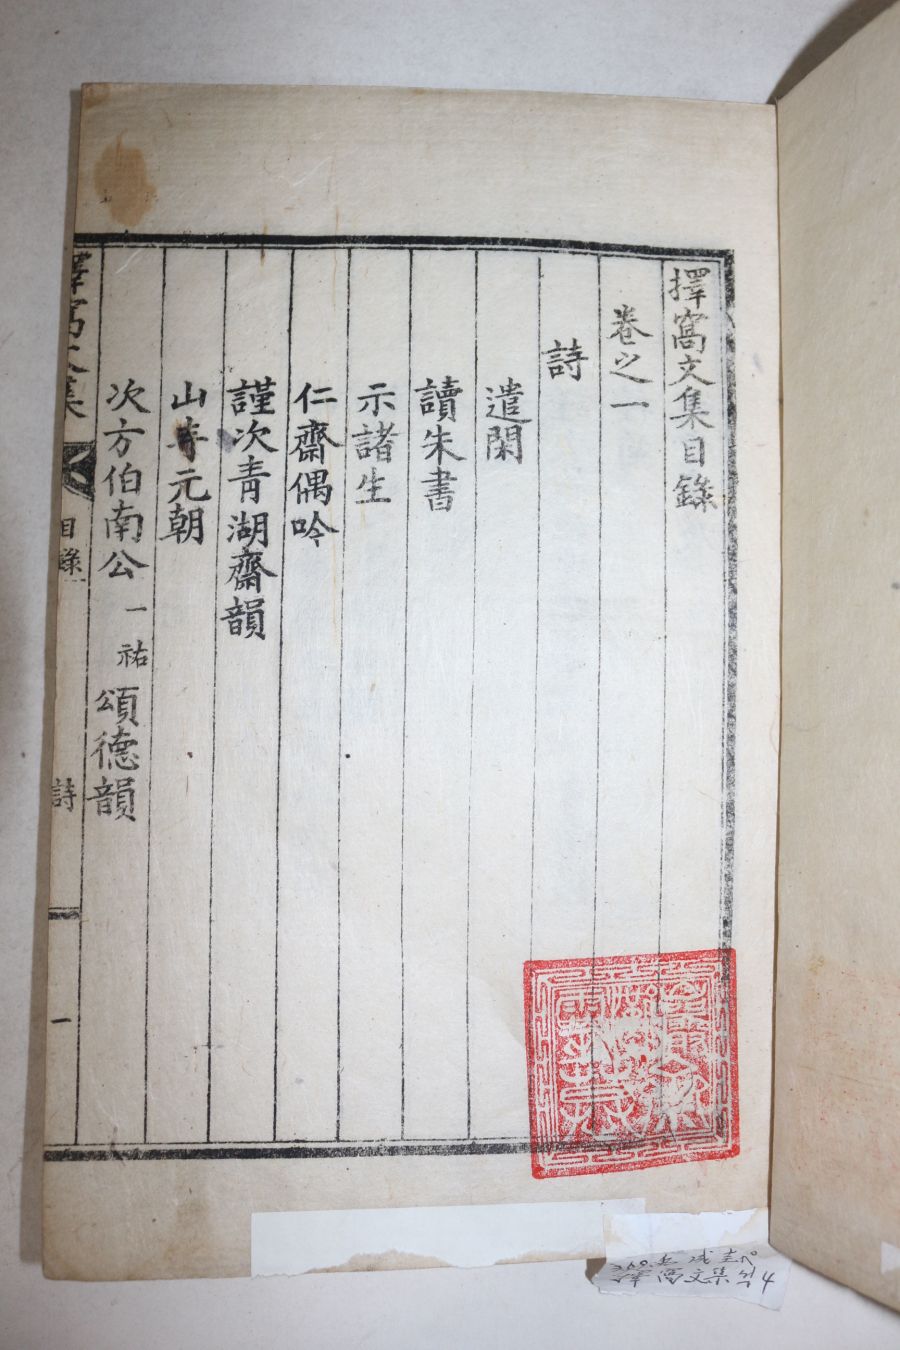 擇窩文集目錄
卷之一
詩
遣閑
讀朱書
示諸生
仁齋偶吟
謹次靑湖齋韻
山寺元朝
次方伯南公一祐頌德韻
擇窩文集
目錄
詩
一
擇窩文集